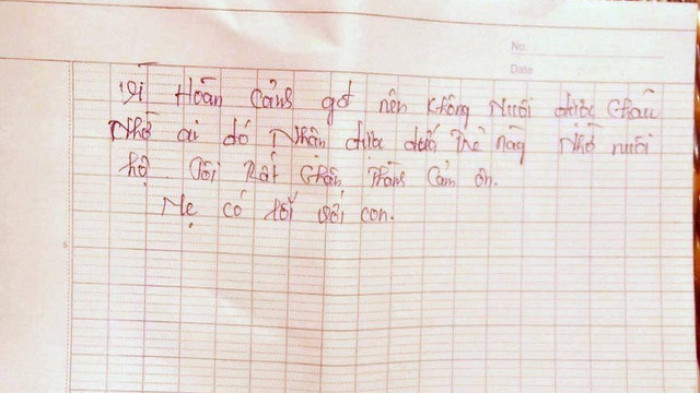 No.
Date
Vì Hoàn Cảnh gđ nên Không Nuôi được Cháu
Nhờ ai đó Nhận được đứa Trẻ này Nhờ nuôi
hộ. Tôi Rất Chân Thàng Cảm ơn.
Mẹ có lỗi với con.